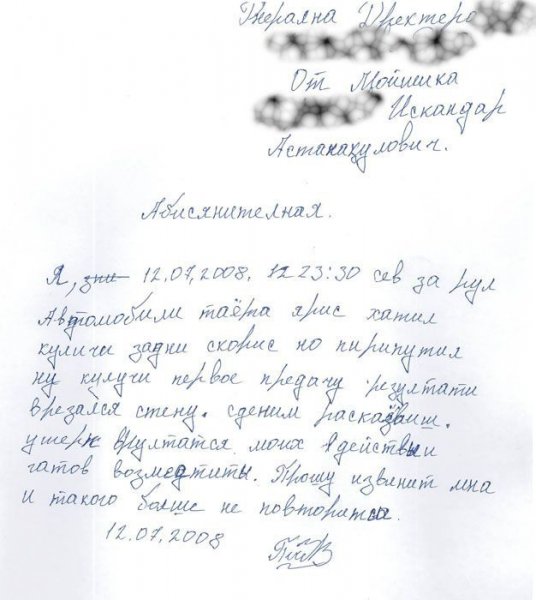 Гнералиа Дректеро
От Мойшика
Искандар
Астанакулович.
Абисянителная.
Я, зпи 12.07.2008. 12 23:30 сев за рул
Автомобили таёта ярис хатил
куличи задни скорис но пирипутил
ну кулучи первое предачу резултати
врезался стену. с деним расказваиш.
ушерп врултатся моих действи
гатов возместиты. Прошу извенит мна
и такого болше не повторится.
12.07.2008